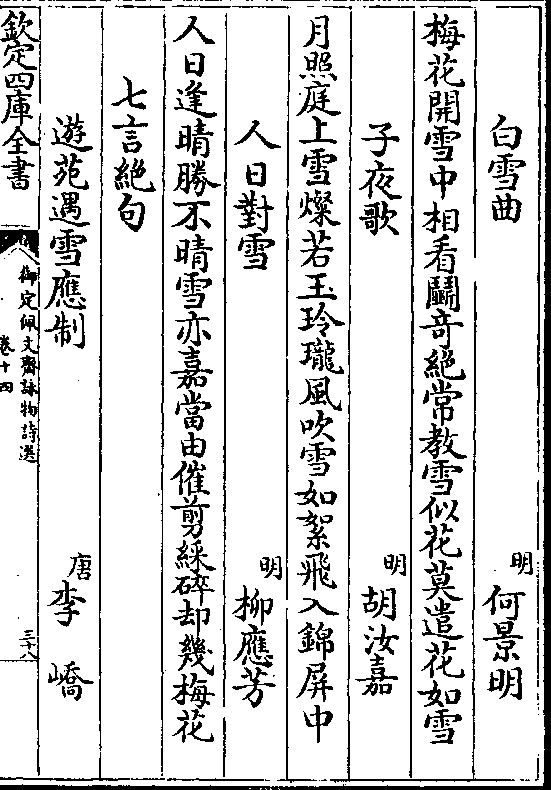 白雪曲　明何景明
梅花開雪中相看鬭奇絕常教雪似花莫遣花如雪
子夜歌　明胡汝嘉
月照庭上雪燦若玉玲瓏風吹雪如絮飛入錦屏中
人日對雪　明柳應芳
人日逢晴勝不晴雪亦嘉當由催剪綵碎却幾梅花
七言絕句
遊苑遇雪應制　唐李嶠
欽定四庫全書
御定佩文齋詠物詩選
卷十四
三十八